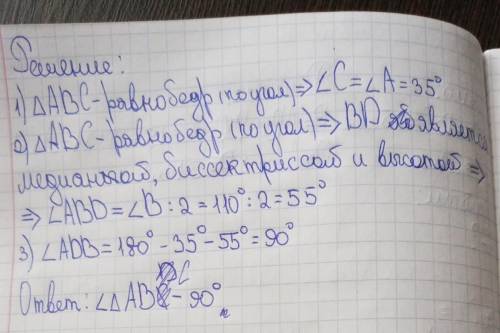 Решение:
1) △ABC-равнобедр (по усл) ⇒ ∠C = ∠A = 35°
2) △ABC-равнобедр (по усл) ⇒ BD является
медианой, биссектриссой и высотой ⇒
⇒ ∠ABD = ∠B : 2 = 110° : 2 = 55°
3) ∠ADB = 180° - 35° - 55° = 90°
Ответ: ∠△ABC - 90°